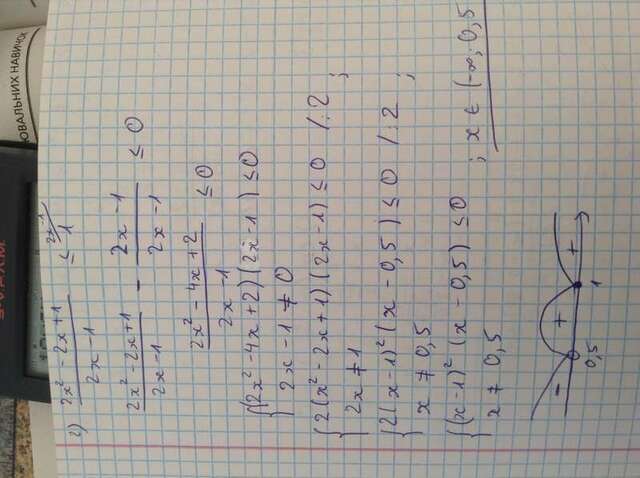 ЮВАЛЬНИХ НАВИЧОК
2) (2x² - 2x + 1)/(2x - 1) ≤ 1 2x-1/
(2x² - 2x + 1)/(2x - 1) - (2x - 1)/(2x - 1) ≤ 0
(2x² - 4x + 2)/(2x - 1) ≤ 0
{(2x² - 4x + 2)(2x - 1) ≤ 0
2x - 1 ≠ 0
{2(x² - 2x + 1)(2x - 1) ≤ 0 /:2
2x ≠ 1 ;
{2(x - 1)² (x - 0,5) ≤ 0 /:2
x ≠ 0,5 ;
{(x - 1)² (x - 0,5) ≤ 0
x ≠ 0,5 ; x ∈ (-∞; 0,5
- + +
0,5 1